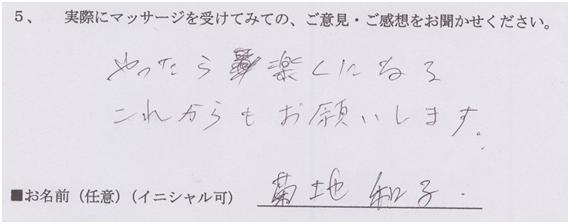 5、 実際にマッサージを受けてみての、ご意見・ご感想をお聞かせください。
やったら楽くになる
これからもお願いします。
■お名前（任意）（イニシャル可） 菊地 和子.